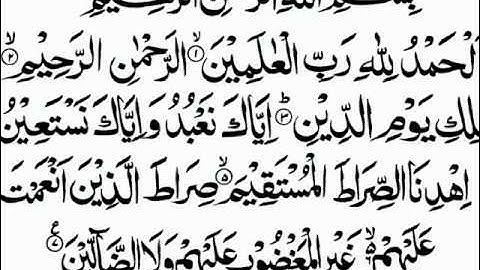 بِسْمِ اللهِ الرَّحْمٰنِ الرَّحِيْمِ
اَلْحَمْدُ لِلّٰهِ رَبِّ الْعٰلَمِيْنَ ۙ﴿۱﴾ الرَّحْمٰنِ الرَّحِيْمِ ۙ﴿۲﴾
مٰلِكِ يَوْمِ الدِّيْنِ ؕ﴿۳﴾ اِيَّاكَ نَعْبُدُ وَاِيَّاكَ نَسْتَعِيْنُ
اِهْدِنَا الصِّرَاطَ الْمُسْتَقِيْمَ ۙ﴿۵﴾ صِرَاطَ الَّذِيْنَ اَنْعَمْتَ
عَلَيْهِمْ ۙ۬﴿۶﴾ غَيْرِ الْمَغْضُوْبِ عَلَيْهِمْ وَلَا الضَّآلِّيْنَ ﴿۷﴾